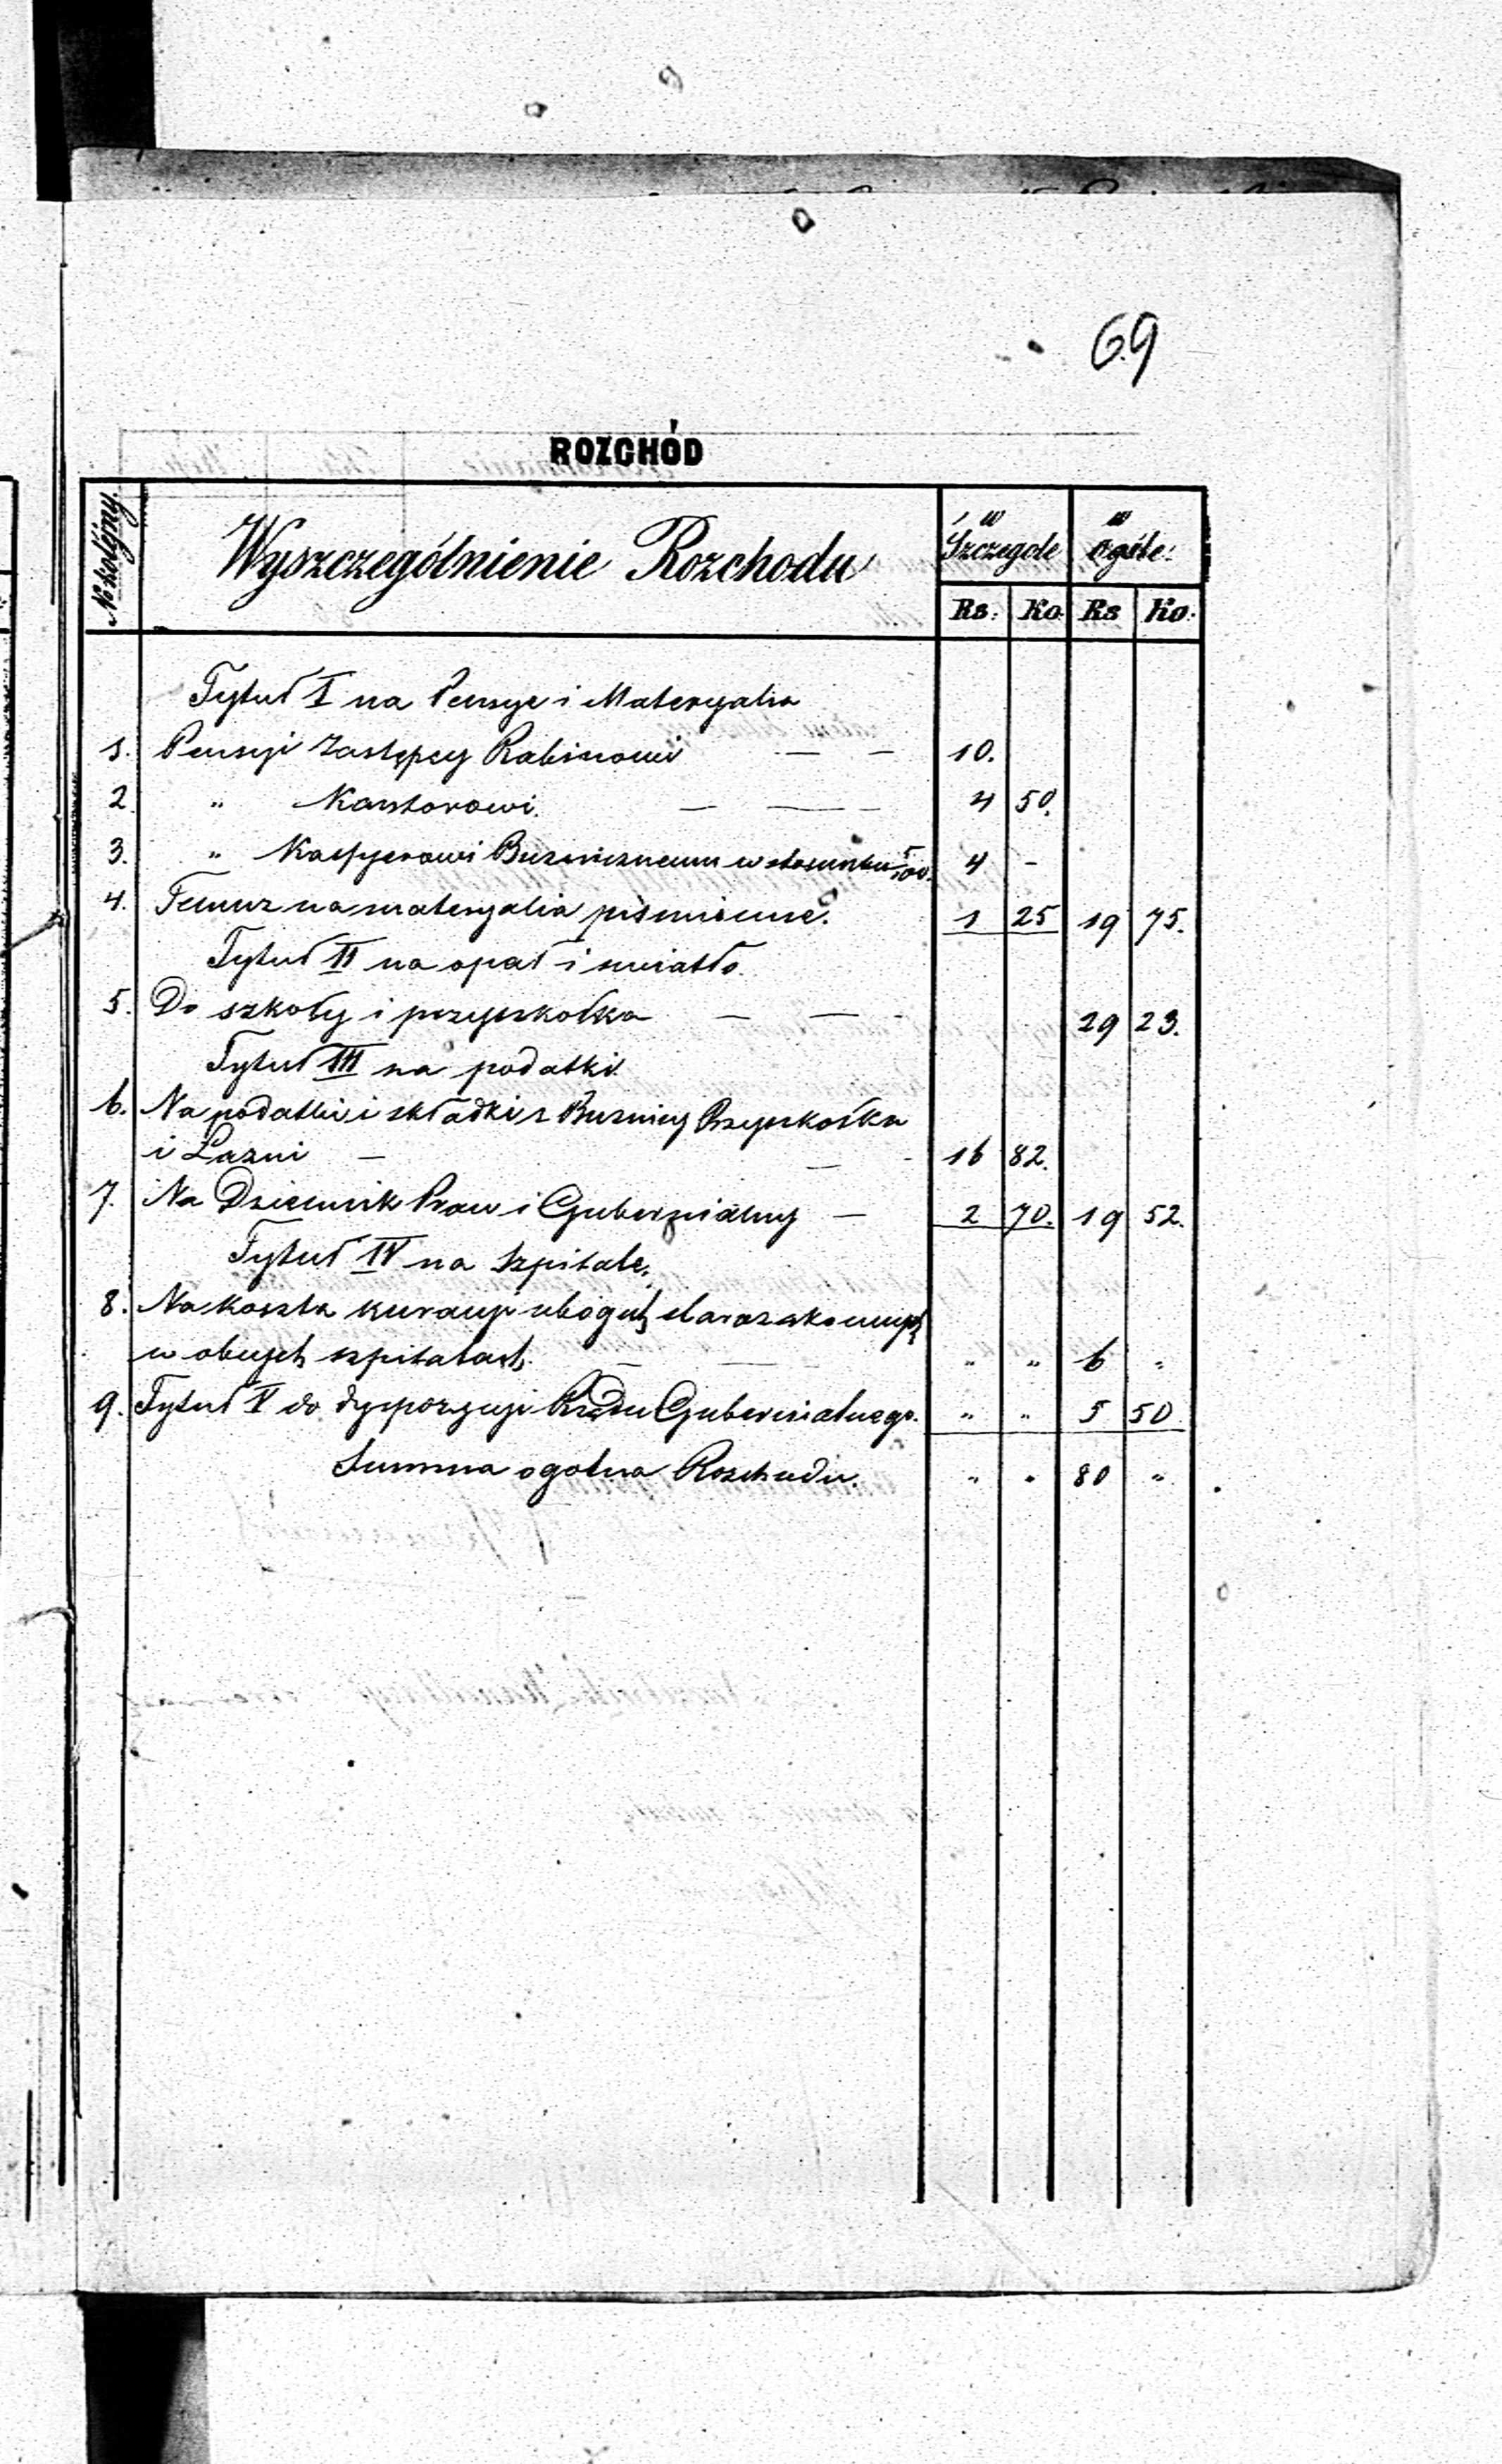 69
ROZCHÓD
No kolejny. Wyszczególnienie Rozchodu w Szczegole w ogóle:
Rs. Ko Rs Ko.
Tytuł I na Pensye i Materyalia
1. Pensyi Zastępcy Rabinowi — — 10.
2. " Kantorowi. — — — 4 50.
3. " Kassyerowi Bużnicznemu w stosunku 5/100. 4 -
4. Temuz na materyalia piśmienne. 1 25 19 75.
Tytuł II na opał i swiatło.
5. Do szkoły i przyszkołka — — - 29 23.
Tytuł III na podatki
6. Na podatki i składki z Bużnicy Przyszkołka
i Łazni — — - 16 82.
7. Na Dziennik Praw i Gubernialny — 2 70. 19 52.
Tytuł IV na Szpitale.
8. Na koszta kuracyi ubogich starozakonnych
w obcych szpitalach. — — " " 6 "
9. Tytuł V do dyspozycyi Rządu Gubernialnego. " " 5 50
Summa ogolna Rozchodu. " " 80 "